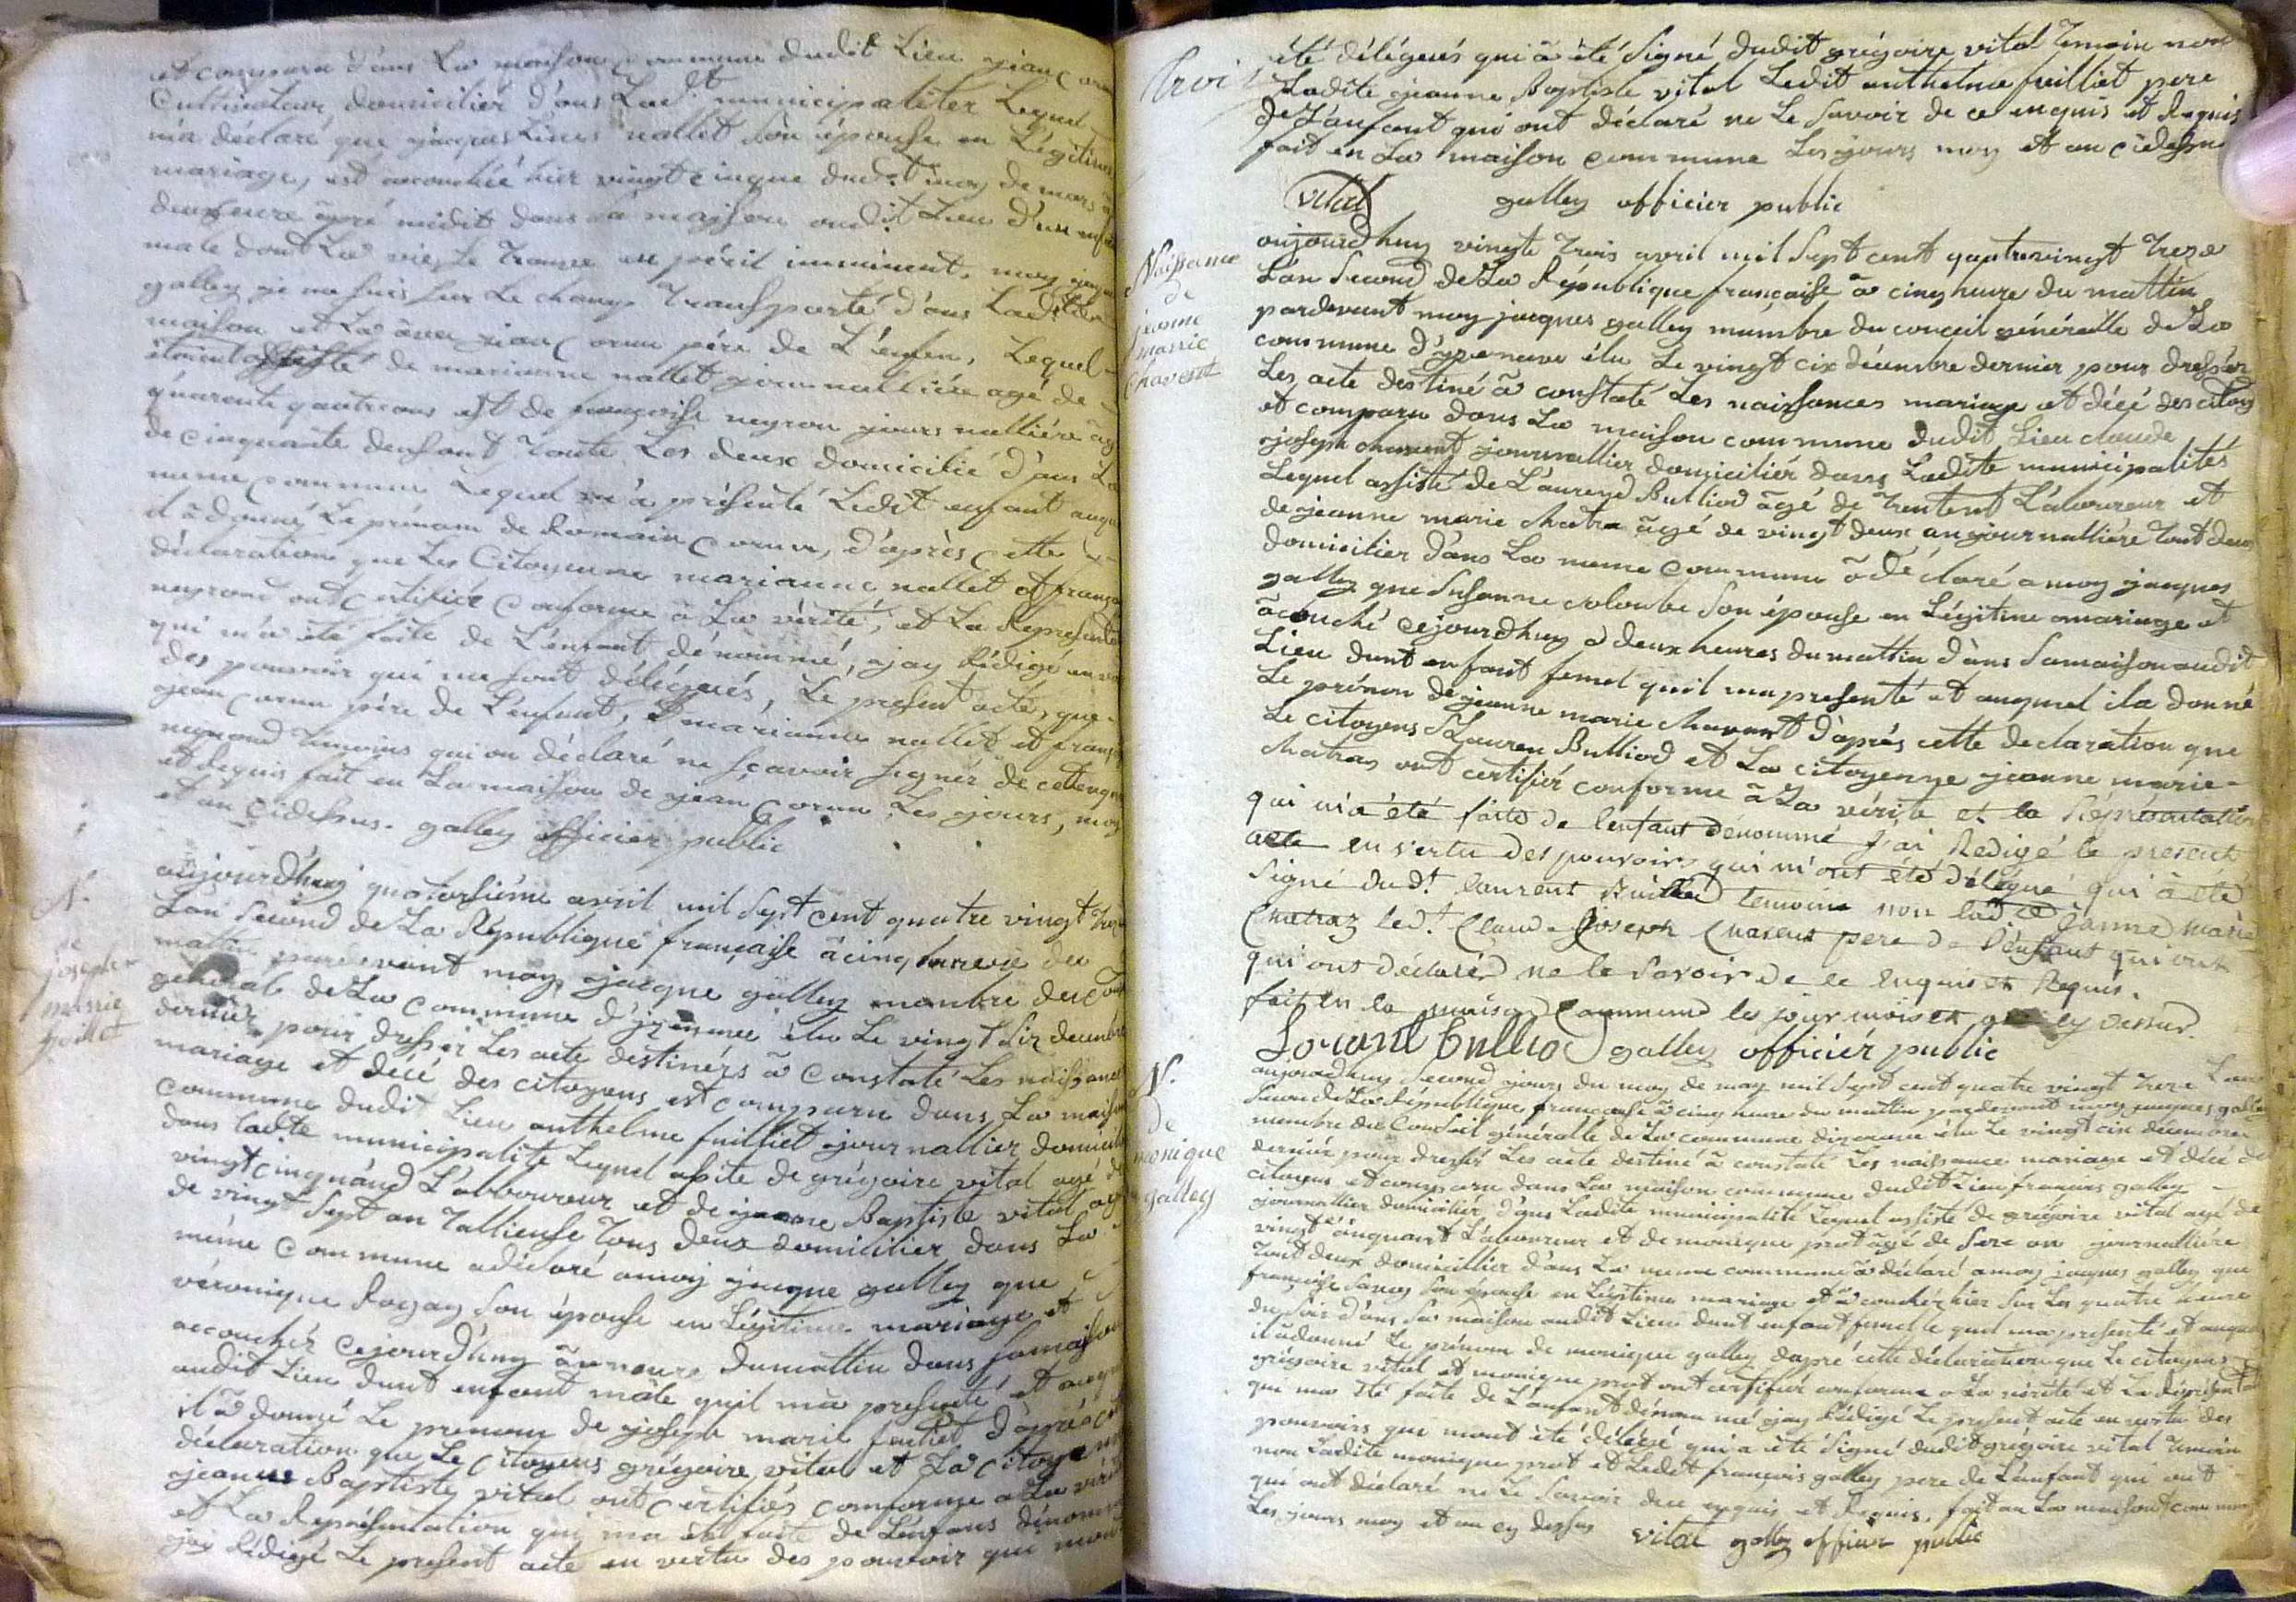 et comparu d'ans La maison commune dudit Lieu jean corun
Cultivateur domicilier d'ans Lad.t municipaliter Lequel
m'a déclaré que jacqueline nallet son épouse en Légitime
mariage, est acouchée hier vingt cinque dudit moy de mars à
deux eure apré midit dans sa maison audit Lieu d'un enfan
male dont La vie se trouve en péril imminent, moy jacque
galley je me suis sur Le champ transporté d'ans Ladite
maison et La avec jean corun père de L'enfen, Lequel
étoient assisté de marianne nallet journallière agé de
quarente quatre ans est de françoise neyron journallière agé
de cinquante deux ant toute Les deux domicilié d'ans La
meme commune Lequel m'a présenté Ledit enfant auquel
il à donné Le prénom de Romain corun, d'après cette
déclaration que Les Citoyenne marianne nallet et françoise
neyrond ont certifiér conforme à La vérité, et La Représentation
qui m'a été faite de L'enfant dénommé, jay Rédigé en vertu
des pouvoir qui me sont délégués, Le présent acte, que
jean corun père de L'enfant, marianne nallet et françoise
neyrond témoins qui on déclaré ne sçavoir signér de ce enquis
et Requis fait en La maison de jean corun Les jours, moy
et an cidessus. galley officier public
N.
de
joseph
marie
fuillet
aujourdhuy quatorsiéme avril mil sept cent quatre vingt treze
Lan second de La République française à cinq heure du
mattin pardevant moy jacque galley membre du Con
général de La commune d'izenave élu Le vingt six decembre
derniér pour dressér Les acte destinérs à Constaté Les naissance
mariage et décé des citoyens et comparu dans La maison
commune dudit Lieu anthelme fuilliet journallier domicilié
dans ladite municipalite Lequel assite de grégoire vital agé de
vingt cinq nand L'abboureur et de jeanne Baptiste vital agé
de vingt sept an tallieuse tous deux domicilier dans La
méme commune a déclaré amoy jacque galley que
véronique Rogay son épouse en Légitime mariage et
accouchér cejourdhuy à une heure dumattin dans samaison
audit Lieu dunt enfant mâle quil ma presenté et auquel
il à donné Le prenom de joseph marie fuilliet d'après cette
déclaration que Le Citoyens grégoire vital et La Citoyenne
jeanne Baptiste vital ont certifiés conforme a La vérité
et La Représentation qui ma été faite de L'enfans dénommé
jay Rédigé Le présent acte en vertu des pouvoir qui mont
Troi
été délégués qui à été signé dudit grégoire vital temoin non
Ladite jeanne Baptiste vital Ledit anthelme fuilliet pere
de L'anfant qui ont déclaré ne Le savoir de ce enquis et Requis
fait en La maison commune Les jours moy et an cidessus
vital galley officier public
Naissance
de
jeanne
marie
Chavent
aujourdhuy vingte trois avril mil sept cent quatrevingt treze
L'an second de La République française à cinq heure du mattin
pardevant moy jacques galley mumbre du conceil généralle de La
commune d'yzenave élu Le vingt cix décembre dernier pour dressér
Les acte destiné à constaté Les naissances mariage et décé des citoy
et comparu dans La maison commune dudit Lieu claude
joseph chavent journallier domicilier dans Ladite municipalités
Lequel assisté de L'aurend Bulliod âgé de trentent L'aboureur et
de jeanne marie chatra âgé de vingt deux an journallière tout deux
domicilier d'ans La meme commune à déclaré a moy jacques
galley que Susanne colombe son épouse en Légitime amariage et
âcouché cejourdhuy à deux heures du mattin d'ans samaison audit
Lieu dunt enfant femel quil ma presenté et auquel il a donné
Le prénon de jeanne marie chavent d'aprés cette declaration que
Le citoyens Lauren Bulliod et La citoyenne jeanne marie
chatras ont certifiér conforme à La vérite et la Réprésentation
qui m'a été faite de l'enfant dénommé j'ai Redigé le present
acte en vertu des pouvoirs qui m'ont été délégué qui à été
signé dud.t laurent Builliod temoins non ladite Janne marie
Chatraz led.t Claude Joseph Chavent pere de l'enfant qui ont
qui ont déclaré ne le savoir de ce Enquis et Requis.
fait en la maison Commune les jour mois et an cy dessus
Lorant Bulliod galley officiér public
N.
de
monique
galley
aujourdhuy second jours du moy de may mil sept cent quatre vingt treze Lan
second de La République française à cinq heure du mattin pardevant moy jacques galley
membre du Conseil généralle de La commune dizenave élu Le vingt cix décembre
derniér pour dressér Les acte destiné à constaté Les naissance mariage et décé de
citoyens et comparu dans La maison commune dudit Lieu françois galley
journallier domicilier d'ans Ladite municipalité Lequel assisté de grégoire vital agé de
vingt cinquant L'aboureur et de monique prot âgé de seze an journallière
tout deux domicillier d'ans La meme commune à déclaré a moy jacques galley que
françoise savey son épouse en Légitime mariage et à couchér hier sur Les quatre heure
du soir d'ans sa maison audit Lieu dunt enfant femelle quel ma presenté et auquel
il à donné Le prénom de monique galley daprè cette déclaration que Le citoyens
grégoire vital et monique prot ont certifiér conforme a La vérité et La Réprésentation
qui ma été faite de L'anfant dénommé jay Rédigé Le présent acte en vertu des
pouvoirs que mont été délégé qui a été signé dudit grégoire vital temoin
non Ladite monique prot et Ledit françois galley pere de L'anfant qui ont
qui ont déclaré ne Le savoir de ce enquis et Requis. fait en La maison commune
Les jours moy et an cy dessus vital galley officier public